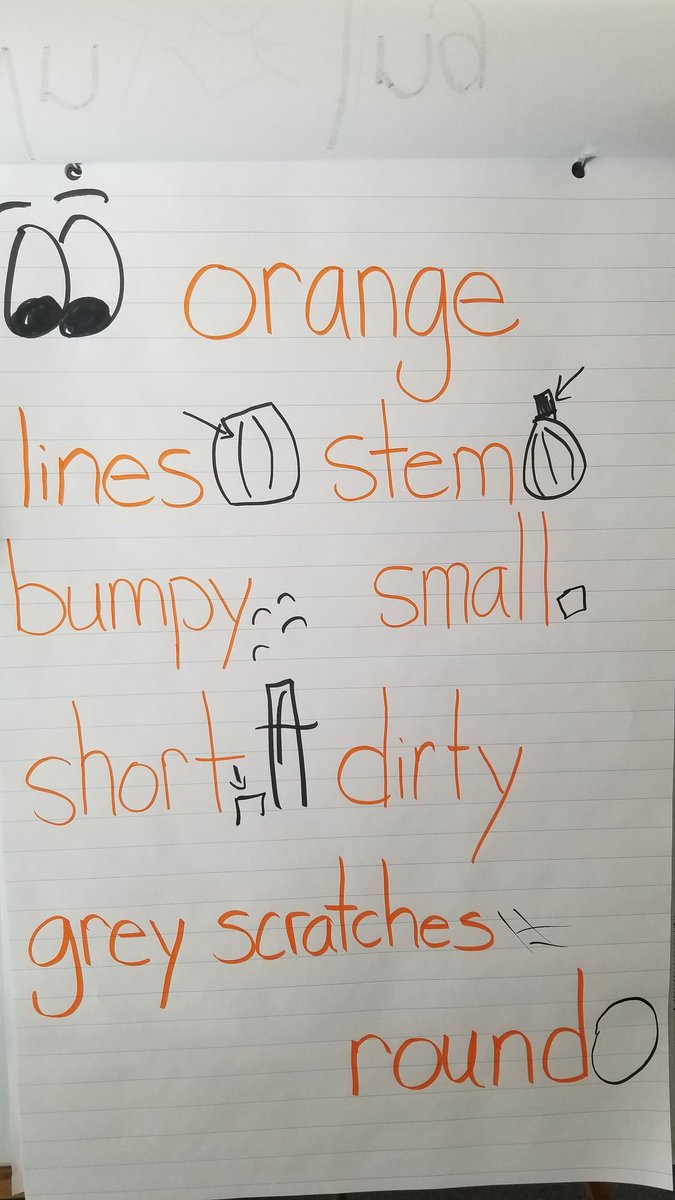 orange
lines stem
bumpy small
short dirty
grey scratches
round